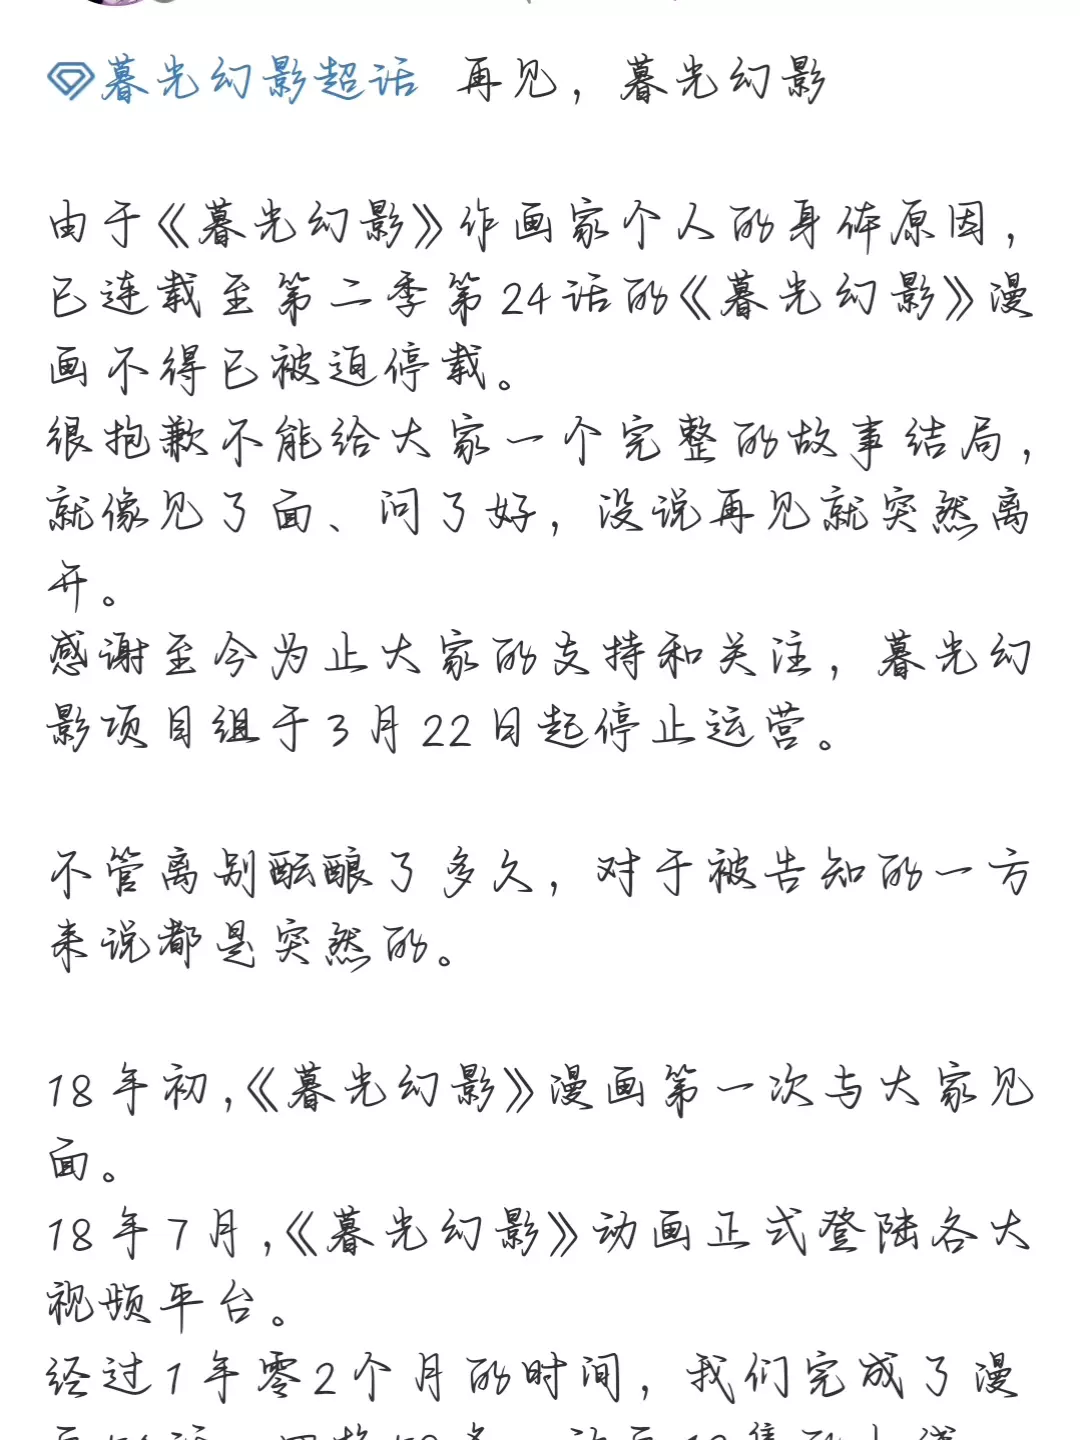 暮光幻影超话 再见，暮光幻影
由于《暮光幻影》作画家个人的身体原因，
已连载至第二季第24话的《暮光幻影》漫
画不得已被迫停载。
很抱歉不能给大家一个完整的故事结局，
就像见了面、问了好，没说再见就突然离
开。
感谢至今为止大家的支持和关注，暮光幻
影项目组于3月22日起停止运营。
不管离别酝酿了多久，对于被告知的一方
来说都是突然的。
18年初，《暮光幻影》漫画第一次与大家见
面。
18年7月，《暮光幻影》动画正式登陆各大
视频平台。
经过1年零2个月的时间，我们完成了漫